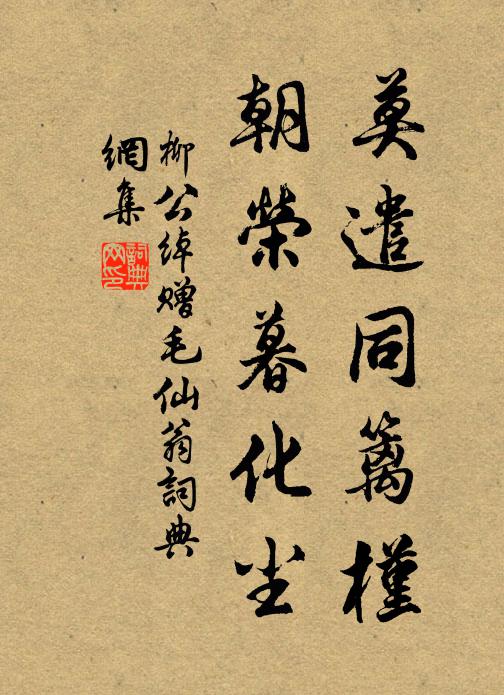 莫遣同篱槿
朝荣暮化尘
柳公绰赠毛仙翁詞典
網集
詞典网印